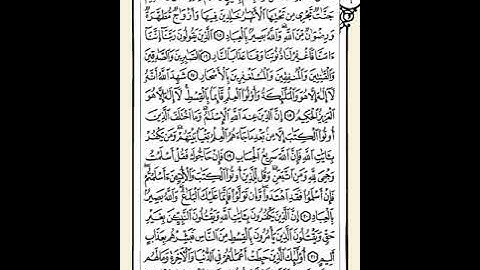 جَنَّٰتٞ تَجۡرِي مِن تَحۡتِهَا ٱلۡأَنۡهَٰرُ خَٰلِدِينَ فِيهَا وَأَزۡوَٰجٞ مُّطَهَّرَةٞ
وَرِضۡوَٰنٞ مِّنَ ٱللَّهِۗ وَٱللَّهُ بَصِيرُۢ بِٱلۡعِبَادِ ١٥ ٱلَّذِينَ يَقُولُونَ رَبَّنَآ إِنَّنَآ
ءَامَنَّا فَٱغۡفِرۡ لَنَا ذُنُوبَنَا وَقِنَا عَذَابَ ٱلنَّارِ ١٦ ٱلصَّٰبِرِينَ وَٱلصَّٰدِقِينَ
وَٱلۡقَٰنِتِينَ وَٱلۡمُنفِقِينَ وَٱلۡمُسۡتَغۡفِرِينَ بِٱلۡأَسۡحَارِ ١٧ شَهِدَ ٱللَّهُ أَنَّهُۥ
لَآ إِلَٰهَ إِلَّا هُوَ وَٱلۡمَلَٰٓئِكَةُ وَأُوْلُواْ ٱلۡعِلۡمِ قَآئِمَۢا بِٱلۡقِسۡطِۚ لَآ إِلَٰهَ إِلَّا هُوَ
ٱلۡعَزِيزُ ٱلۡحَكِيمُ ١٨ إِنَّ ٱلدِّينَ عِندَ ٱللَّهِ ٱلۡإِسۡلَٰمُۗ وَمَا ٱخۡتَلَفَ ٱلَّذِينَ
أُوتُواْ ٱلۡكِتَٰبَ إِلَّا مِنۢ بَعۡدِ مَا جَآءَهُمُ ٱلۡعِلۡمُ بَغۡيَۢا بَيۡنَهُمۡۗ وَمَن يَكۡفُرۡ
بِـَٔايَٰتِ ٱللَّهِ فَإِنَّ ٱللَّهَ سَرِيعُ ٱلۡحِسَابِ ١٩ فَإِنۡ حَآجُّوكَ فَقُلۡ أَسۡلَمۡتُ
وَجۡهِيَ لِلَّهِ وَمَنِ ٱتَّبَعَنِۗ وَقُل لِّلَّذِينَ أُوتُواْ ٱلۡكِتَٰبَ وَٱلۡأُمِّيِّـۧنَ ءَأَسۡلَمۡتُمۡۚ
فَإِنۡ أَسۡلَمُواْ فَقَدِ ٱهۡتَدَواْۖ وَّإِن تَوَلَّوۡاْ فَإِنَّمَا عَلَيۡكَ ٱلۡبَلَٰغُۗ وَٱللَّهُ بَصِيرُۢ
بِٱلۡعِبَادِ ٢٠ إِنَّ ٱلَّذِينَ يَكۡفُرُونَ بِـَٔايَٰتِ ٱللَّهِ وَيَقۡتُلُونَ ٱلنَّبِيِّـۧنَ بِغَيۡرِ
حَقّٖ وَيَقۡتُلُونَ ٱلَّذِينَ يَأۡمُرُونَ بِٱلۡقِسۡطِ مِنَ ٱلنَّاسِ فَبَشِّرۡهُم بِعَذَابٍ
أَلِيمٍ ٢١ أُوْلَٰٓئِكَ ٱلَّذِينَ حَبِطَتۡ أَعۡمَٰلُهُمۡ فِي ٱلدُّنۡيَا وَٱلۡأٓخِرَةِ وَمَا لَهُم